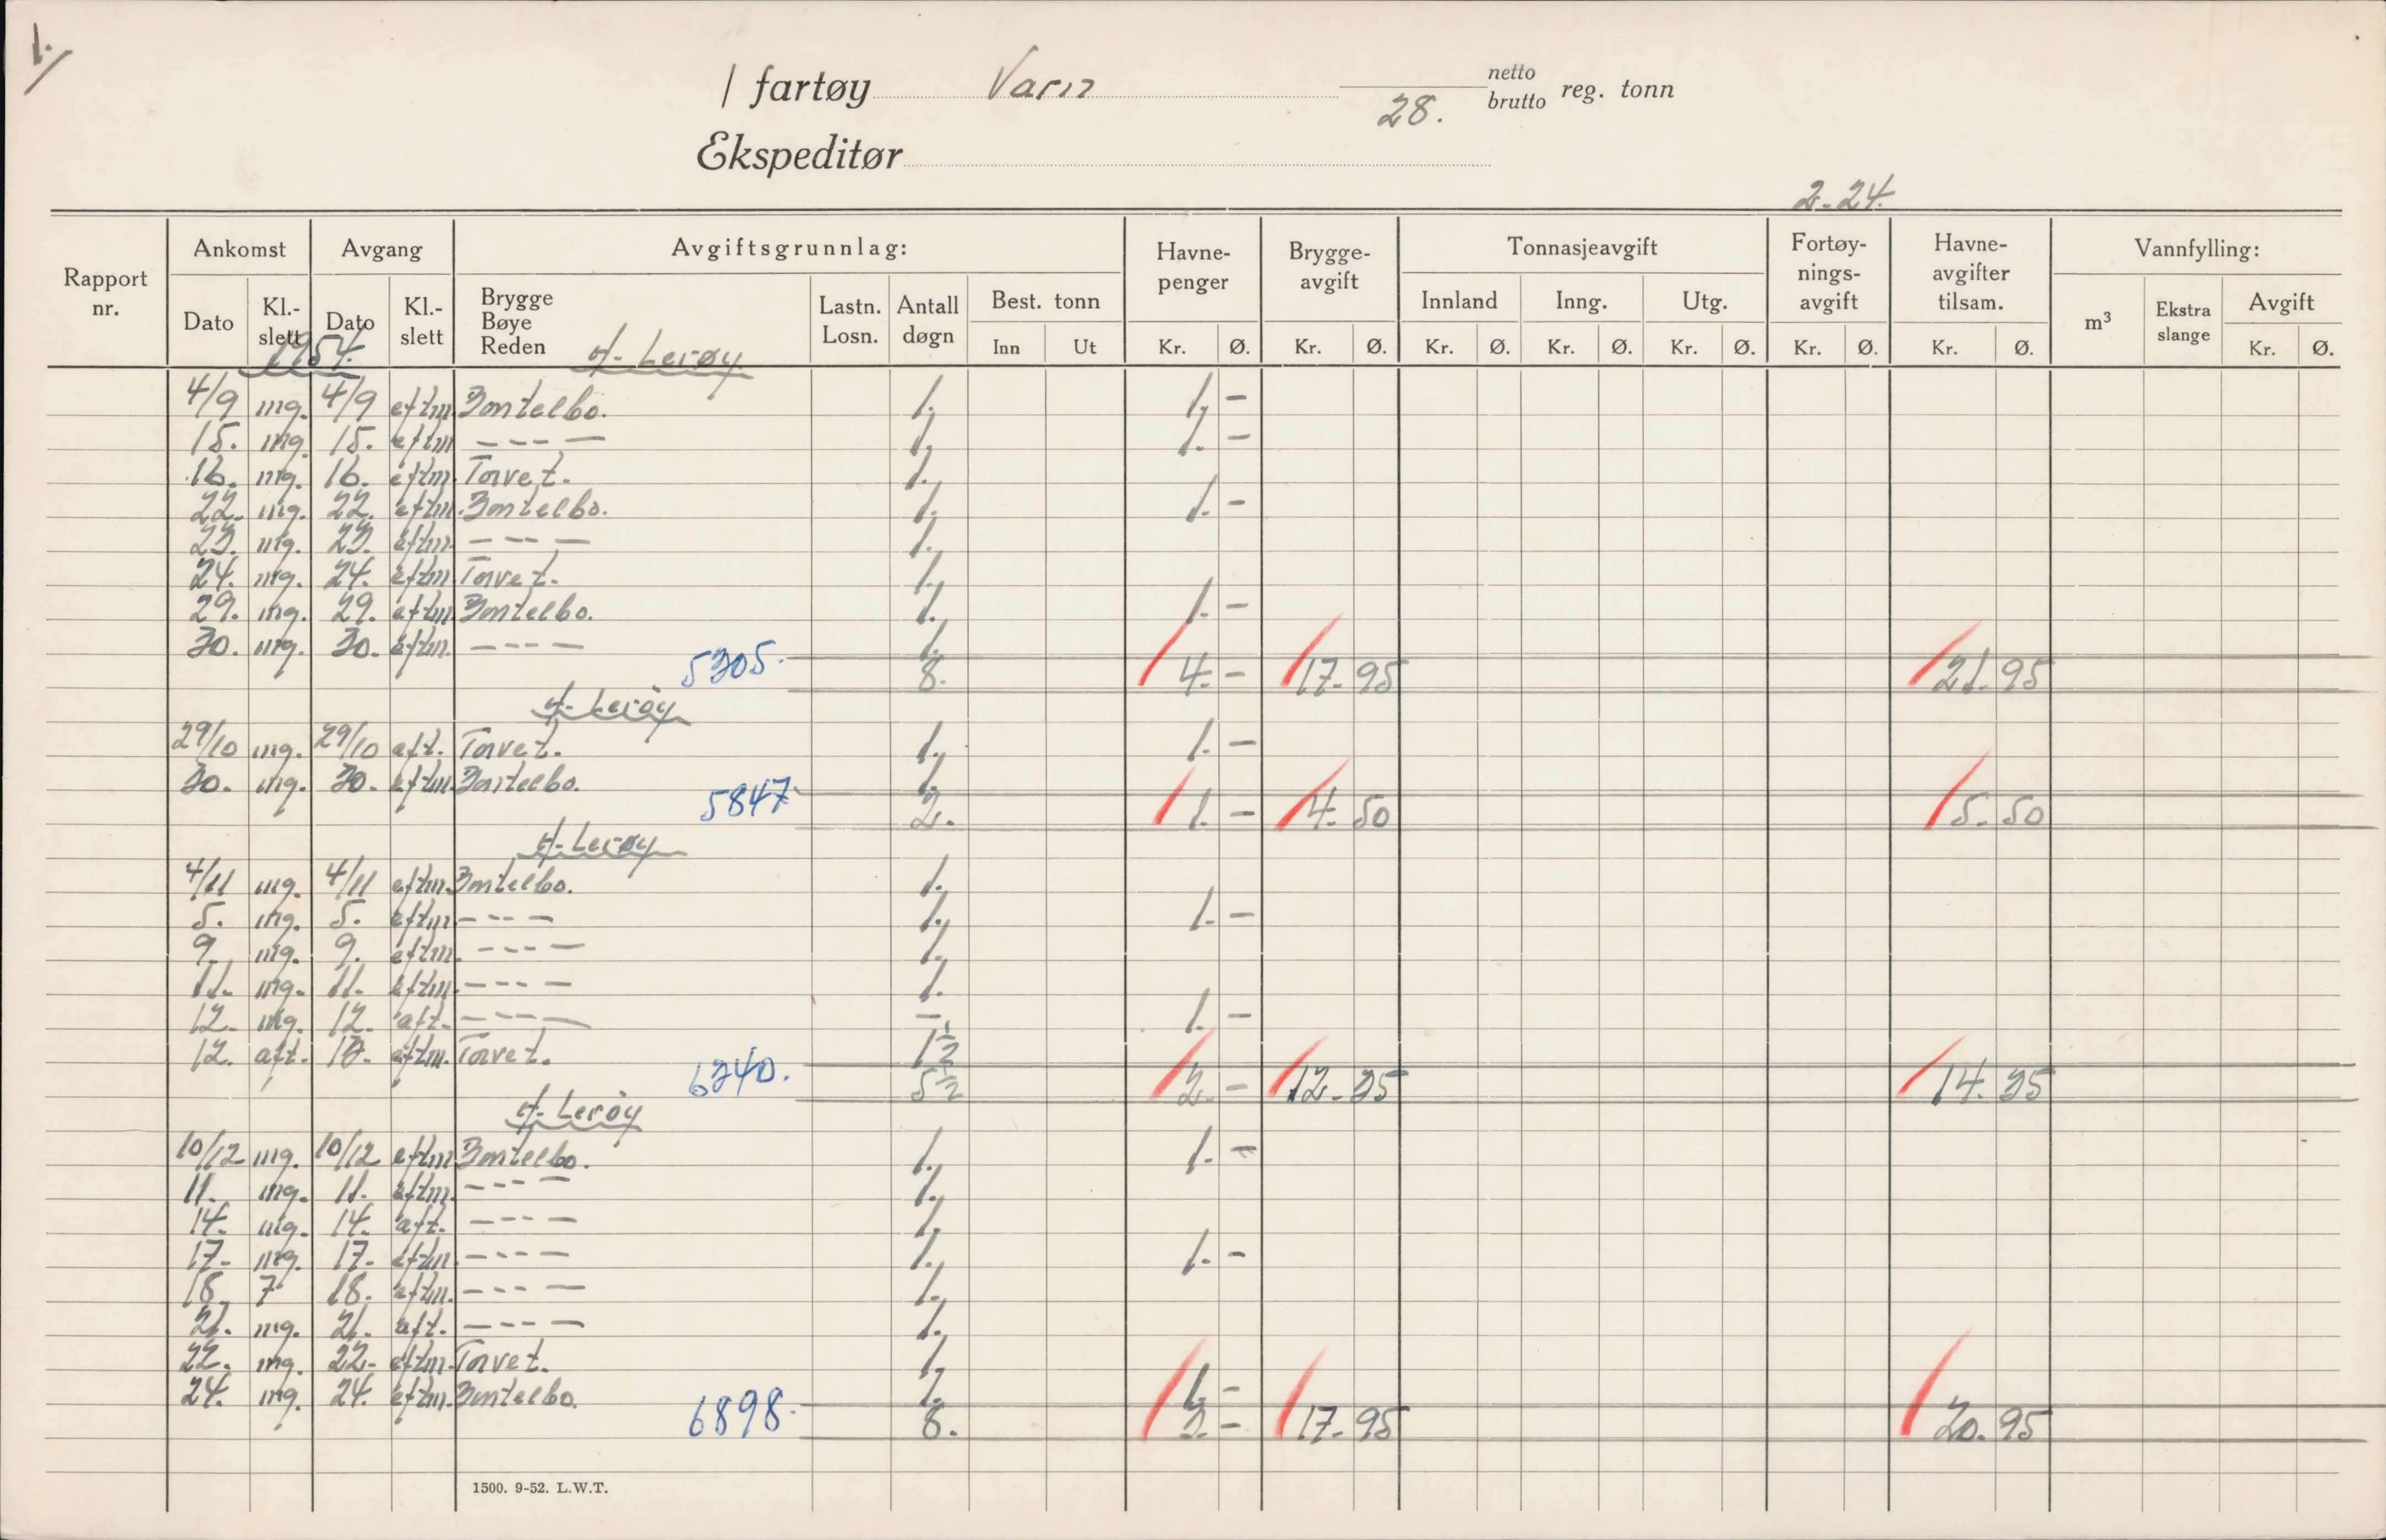 1.
/ fartøy Varn 28. netto brutto reg. tonn
Ekspeditør
2.24.
Rapport nr. Ankomst Avgang Avgiftsgrunnlag: Havne-penger Brygge-avgift Tonnasjeavgift Fortøy-nings-avgift Havne-avgifter tilsam. Vannfylling:
Dato Kl.-slett Dato Kl.-slett Brygge Bøye Reden Lastn. Losn. Antall døgn Best. tonn Innland Inng. Utg. m³ Ekstra slange Avgift
Inn Ut Kr. Ø. Kr. Ø. Kr. Ø. Kr. Ø. Kr. Ø. Kr. Ø. Kr. Ø. Kr. Ø.
1954. Lerøy.
4/9 mg. 4/9 eftm Bontelbo. 1. 1. -
15. mg. 15. eftm - - - - 1. 1. -
16. mg. 16. eftm Torvet. 1.
22. mg. 22. eftm. Bontelbo. 1. 1. -
23. mg. 23. eftm. - - - - 1.
24. mg. 24. eftm Torvet. 1.
29. mg. 29. eftm. Bontelbo. 1. 1. -
30. mg. 30. eftm. - - - - 1.
5305. 8. 4. - 17.95 21.95
Lerøy
29/10 mg. 29/10 aft. Torvet. 1. 1. -
30. mg. 30. eftm. Bontelbo. 1.
5847 2. 1. - 4.50 5.50
Lerøy
4/11 mg. 4/11 eftm. Bontelbo. 1.
5. mg. 5. eftm - - - - 1. 1. -
9. mg. 9. eftm. - - - - 1.
11. mg. 11. eftm. - - - - 1.
12. mg. 12. aft. - - - - - 1. -
12. aft. eftm. Torvet. 1½
6340. 5½ 2. - 12.35 14.35
Lerøy
10/12 mg. 10/12 eftm Bontelbo. 1. 1. -
11. mg. 11. eftm. - - - - 1.
14. mg. 14. aft. - - - - 1.
17. mg. 17. eftm - - - - 1. 1. -
18. 7 18. eftm. - - - - 1.
21. mg. 21. aft. - - - - 1.
22. mg. 22. eftm. Torvet. 1.
24. mg. 24. eftm. Bontelbo. 1. 1. -
6898. 8. 3. - 17.95 20.95
1500. 9-52. L.W.T.